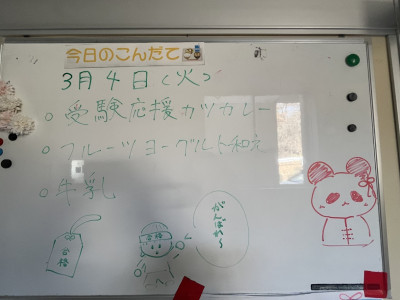 今日のこんだて
3月4日(火)
○受験応援カツカレー
○フルーツヨーグルト和え
○牛乳
合格
合格
がんばれ〜